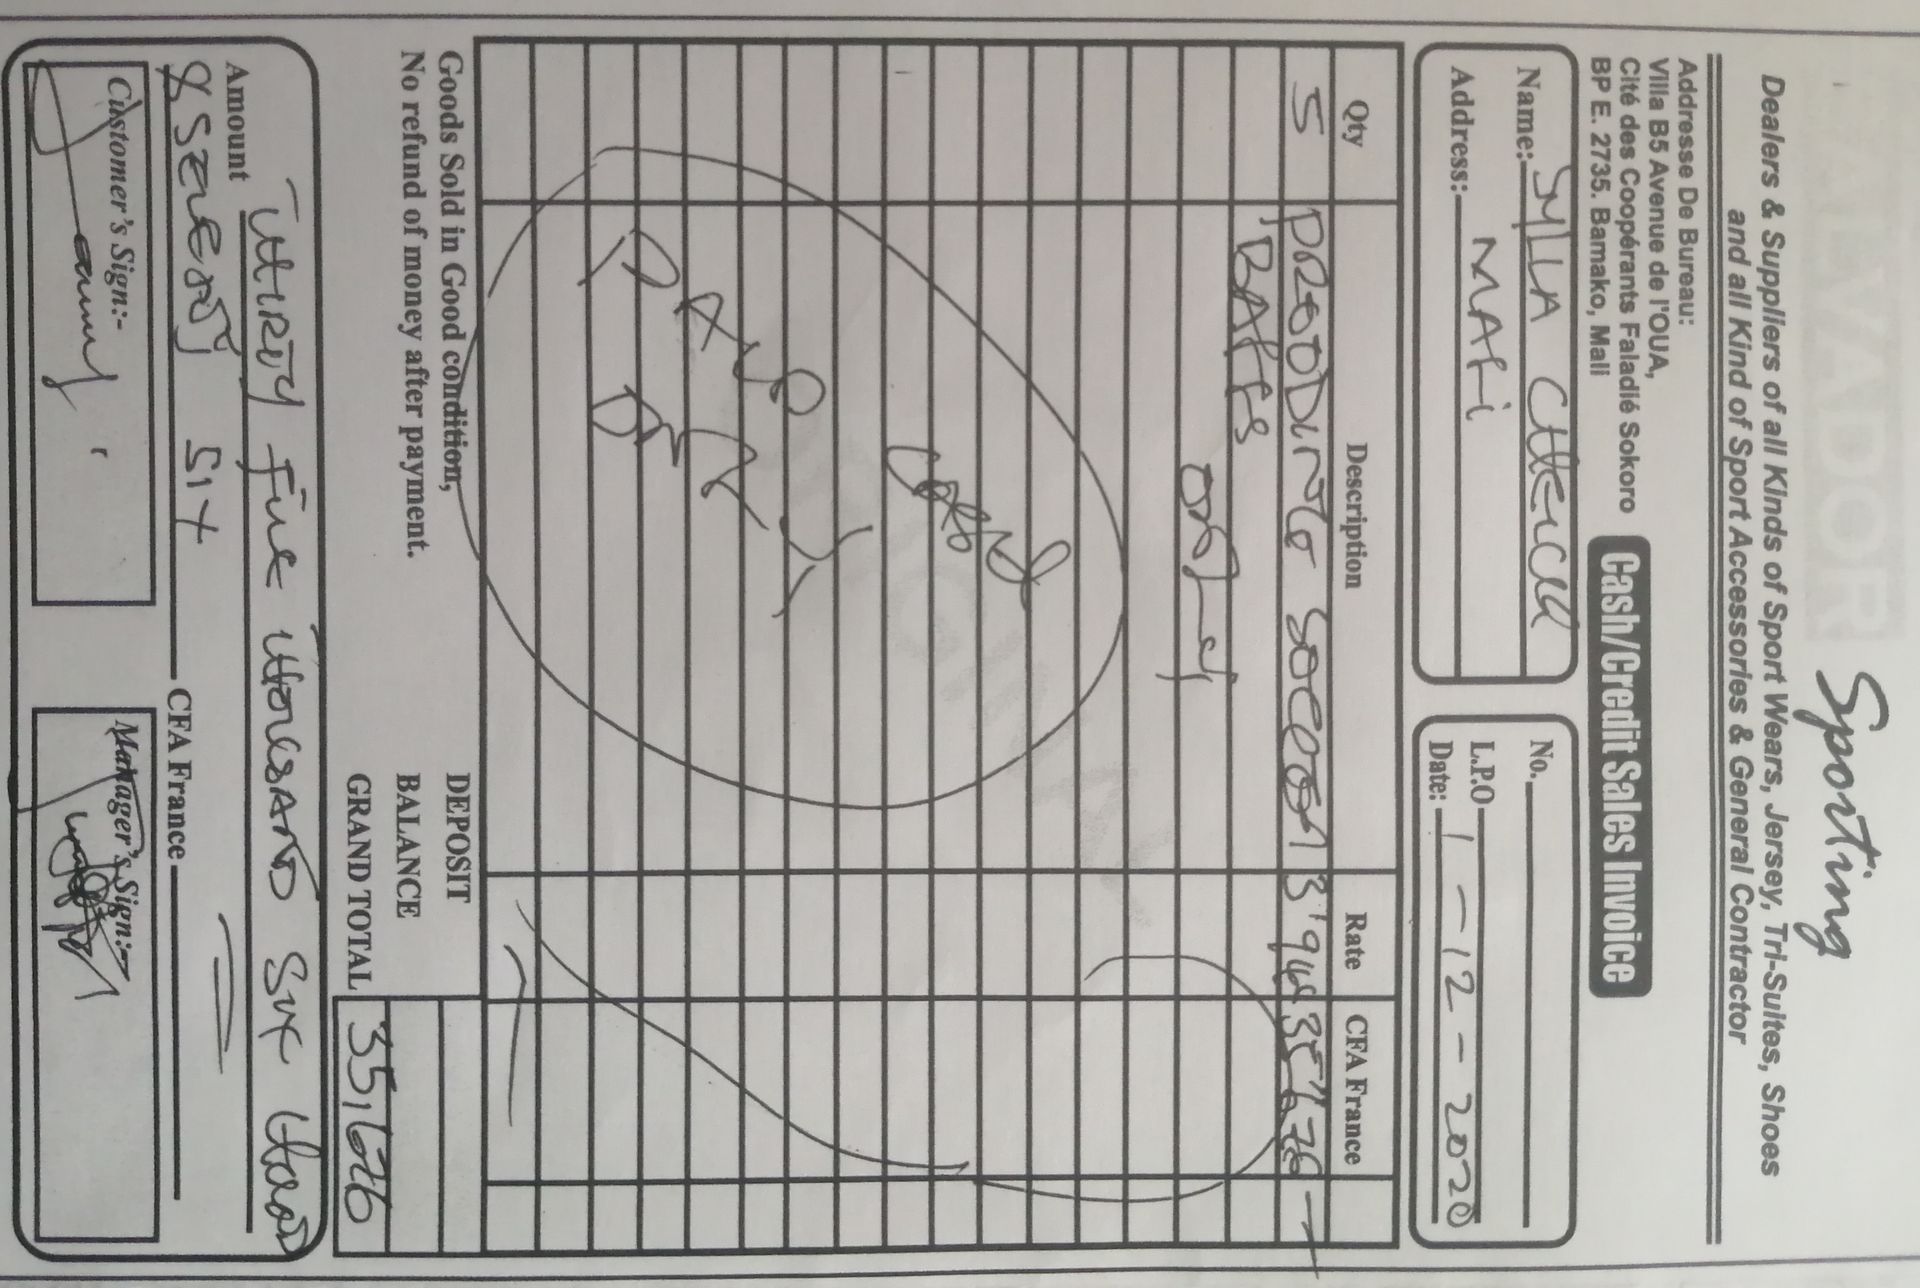 SALVADOR Sporting
Dealers & Suppliers of all Kinds of Sport Wears, Jersey, Tri-Suites, Shoes
and all Kind of Sport Accessories & General Contractor
Addresse De Bureau:
Villa B5 Avenue de l'OUA,
Cité des Coopérants Faladié Sokoro
BP E. 2735. Bamako, Mali
Cash/Credit Sales Invoice
Name: SYLLA
Address: MAFi
No.
L.P.O
Date: 1 - 12 - 2020
Qty Description Rate CFA France
5
BAFFS
only
Goods Sold in Good condition,
No refund of money after payment.
DEPOSIT
BALANCE
GRAND TOTAL 35,676
Amount THIRTY FIVE THOUSAND SIX
& SEVENTY SIX CFA France
Customer's Sign:-
Manager's Sign:-